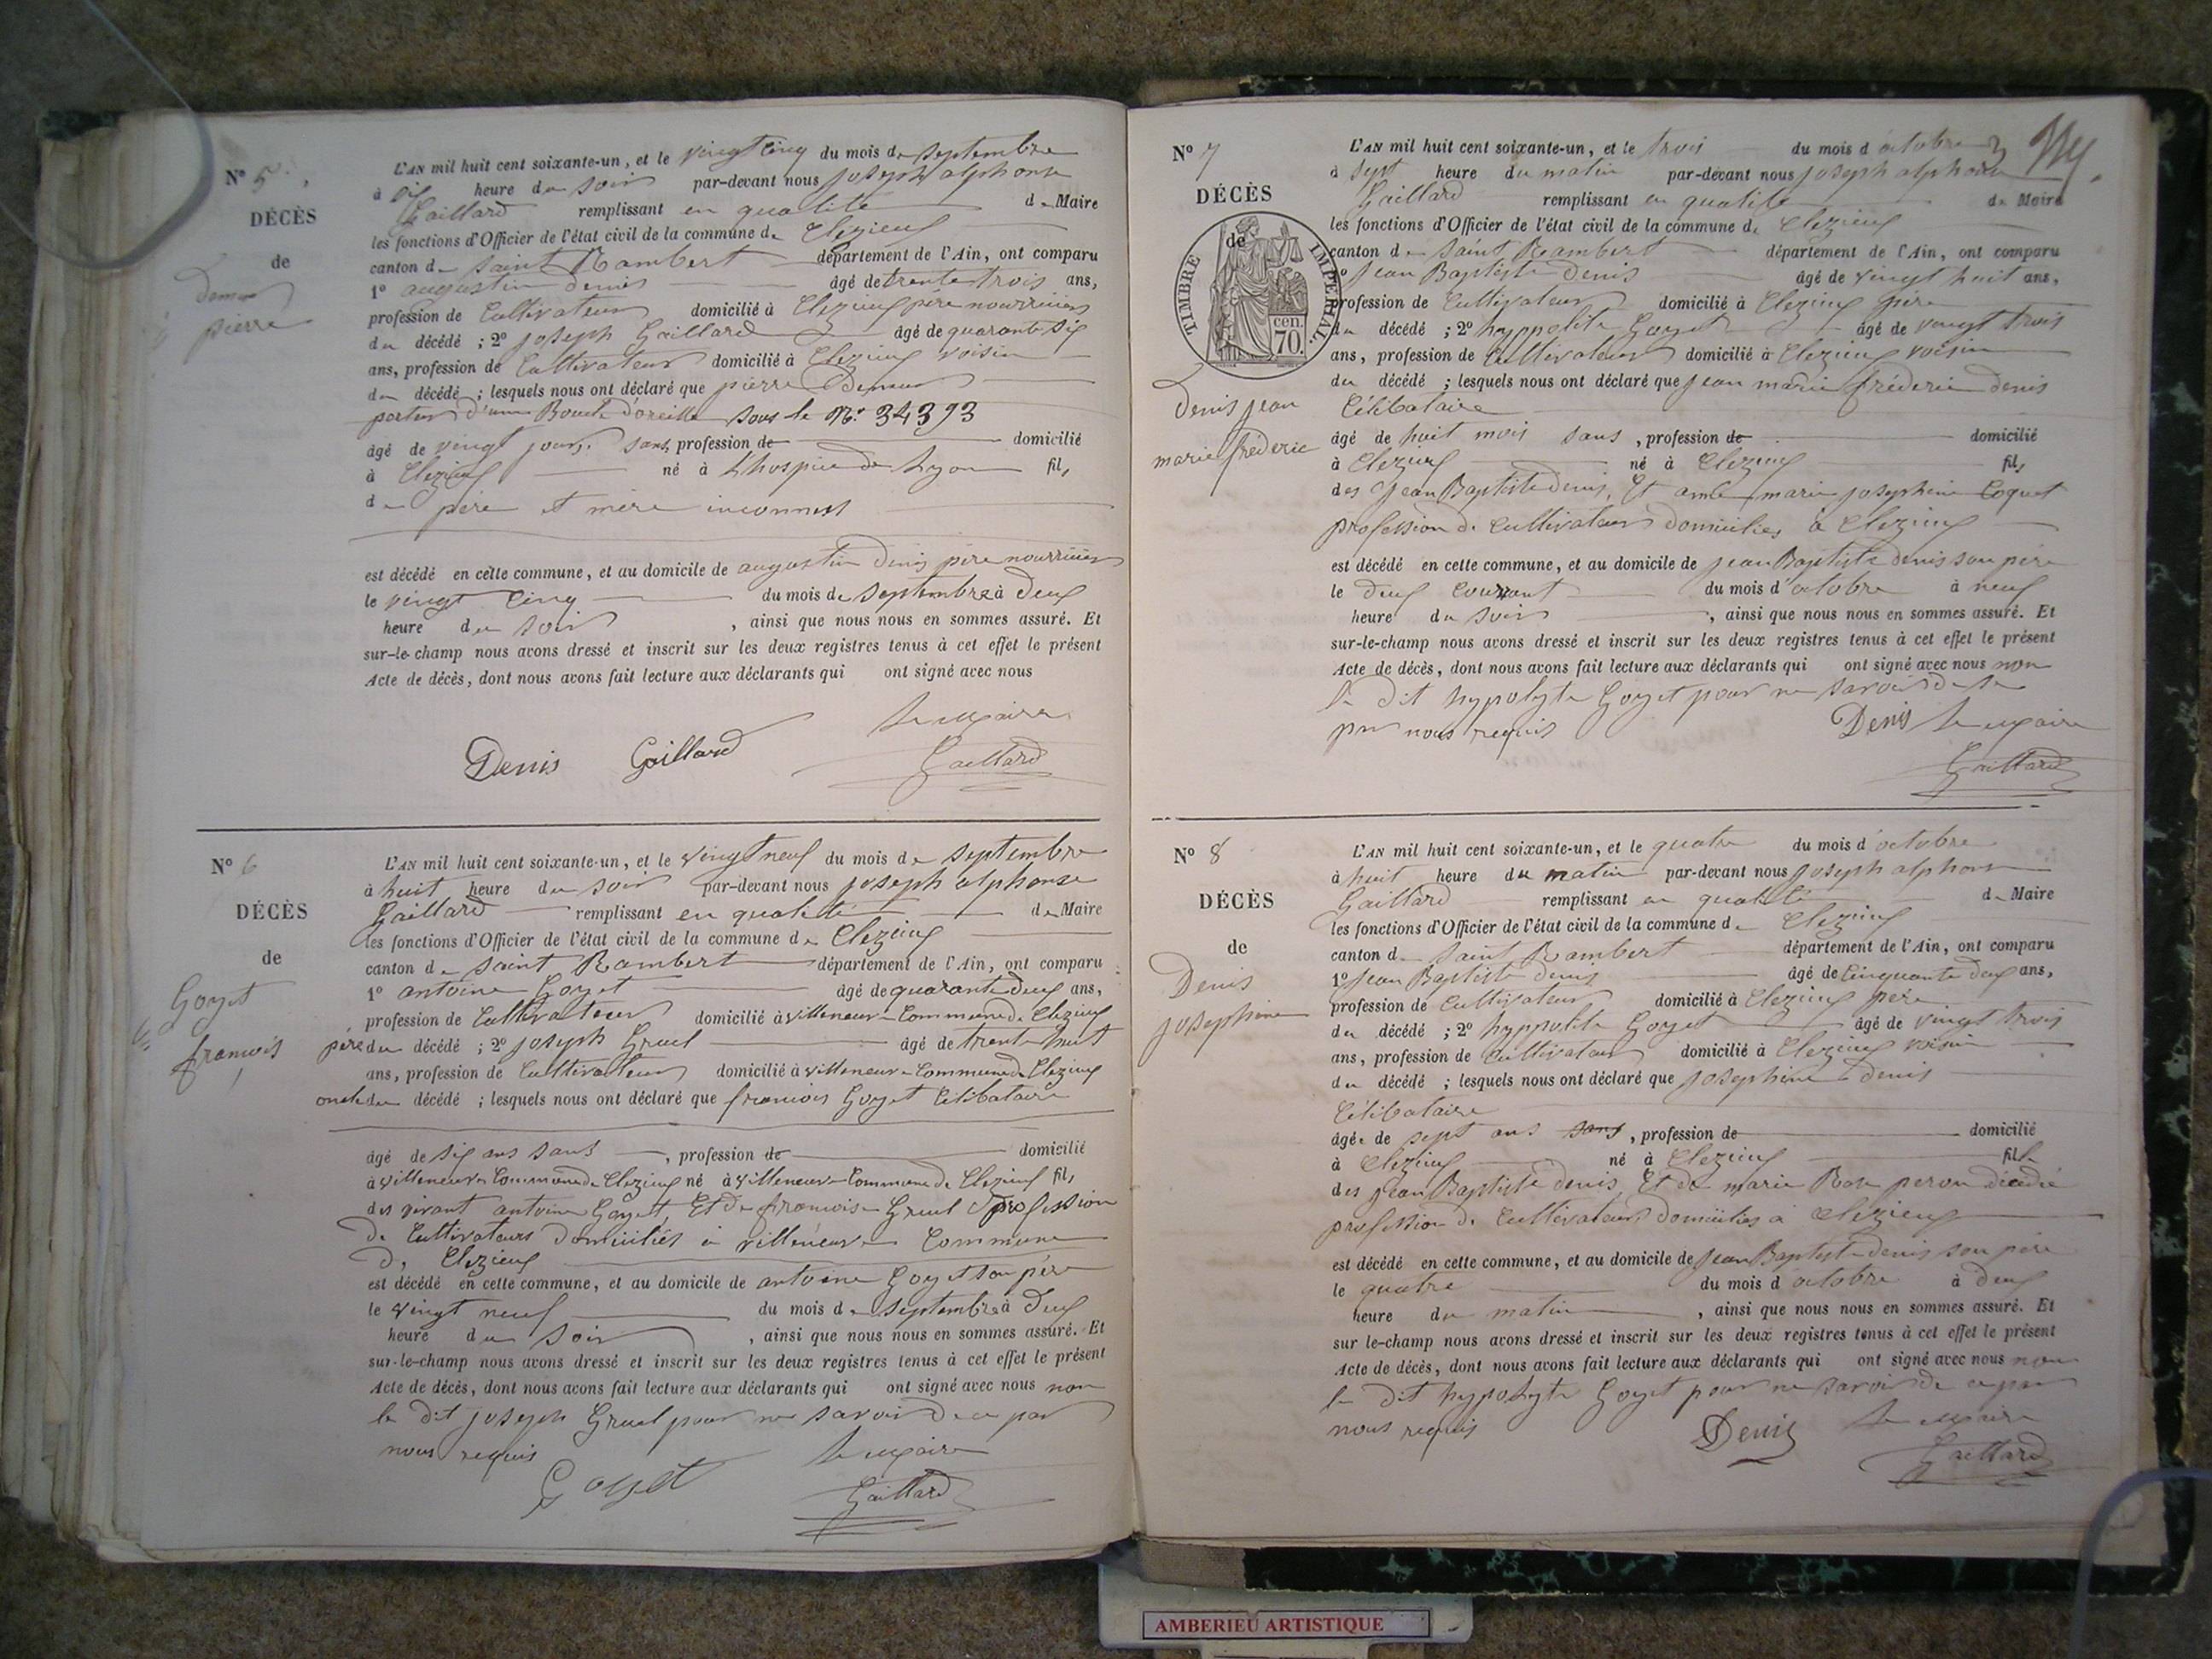 N° 5
DÉCÈS
de
pierre
L'AN mil huit cent soixante-un, et le vingt cinq du mois de septembre
à six heure du soir par-devant nous joseph alphonse
Gaillard remplissant en qualité de Maire
les fonctions d'Officier de l'état civil de la commune de Clezieux
canton de Saint Rambert département de l'Ain, ont comparu
1° augustin denis âgé de trente trois ans,
profession de Cultivateur domicilié à Clezieux père nourricier
du décédé ; 2° joseph Gaillard âgé de quarante six
ans, profession de Cultivateur domicilié à Clezieux voisin
du décédé ; lesquels nous ont déclaré que pierre
porteur d'une Boucle d'oreille sous le N° 34393
âgé de vingt jours. sans, profession de domicilié
à Clezieux né à L'hospice de Lyon fils
de père et mère inconnus
est décédé en cette commune, et au domicile de augustin Denis père nourricier
le vingt Cinq du mois de septembre à deux
heure du soir , ainsi que nous nous en sommes assuré. Et
sur-le-champ nous avons dressé et inscrit sur les deux registres tenus à cet effet le présent
Acte de décès, dont nous avons fait lecture aux déclarants qui ont signé avec nous
le maire
Denis Gaillard Gaillard
N° 6
DÉCÈS
de
Goyet
francois
L'AN mil huit cent soixante-un, et le vingt neuf du mois de septembre
à huit heure du soir par-devant nous joseph alphonse
Gaillard remplissant en qualité de Maire
les fonctions d'Officier de l'état civil de la commune de Clezieux
canton de Saint Rambert département de l'Ain, ont comparu
1° antoine Goyet âgé de quarante deux ans,
profession de Cultivateur domicilié à villeneuve Commune de Clezieux
père du décédé ; 2° joseph Gruel âgé de trente huit
ans, profession de Cultivateur domicilié à villeneuve Commune de Clezieux
oncle du décédé ; lesquels nous ont déclaré que francois Goyet Célibataire
âgé de six ans sans , profession de domicilié
à villeneuve Commune de Clezieux né à villeneuve Commune de Clezieux fils
des vivant antoine Goyet Et de francoise Gruel profession
de Cultivateurs domiciliés à villeneuve Commune
de Clezieux
est décédé en cette commune, et au domicile de antoine Goyet son père
le vingt neuf du mois de septembre à deux
heure du soir , ainsi que nous nous en sommes assuré. Et
sur-le-champ nous avons dressé et inscrit sur les deux registres tenus à cet effet le présent
Acte de décès, dont nous avons fait lecture aux déclarants qui ont signé avec nous non
le dit joseph Gruel pour ne savoir de ce par
nous requis le maire
Goyet Gaillard
N° 7
DÉCÈS
de
TIMBRE IMPÉRIAL.
70 cen.
Denis jean
marie fréderic
L'AN mil huit cent soixante-un, et le trois du mois d'octobre
à sept heure du matin par-devant nous joseph alphonse
Gaillard remplissant en qualité de Maire
les fonctions d'Officier de l'état civil de la commune de Clezieux
canton de Saint Rambert département de l'Ain, ont comparu
1° Jean Baptiste Denis âgé de vingt huit ans,
profession de Cultivateur domicilié à Clezieux père
du décédé ; 2° hyppolite Goyet âgé de vingt trois
ans, profession de Cultivateur domicilié à Clezieux voisin
du décédé ; lesquels nous ont déclaré que jean marie fréderic denis
Célibataire
âgé de huit mois sans , profession de domicilié
à Clezieux né à Clezieux fils
des Jean Baptiste denis, Et marie josephine Coquet
profession de Cultivateurs domiciliés à Clezieux
est décédé en cette commune, et au domicile de jean Baptiste denis son père
le deux Courant du mois d'octobre à neuf
heure du soir , ainsi que nous nous en sommes assuré. Et
sur-le-champ nous avons dressé et inscrit sur les deux registres tenus à cet effet le présent
Acte de décès, dont nous avons fait lecture aux déclarants qui ont signé avec nous non
le dit hypolyte Goyet pour ne savoir de ce
par nous requis Denis le maire
Gaillard
N° 8
DÉCÈS
de
Denis
josephine
L'AN mil huit cent soixante-un, et le quatre du mois d'octobre
à huit heure du matin par-devant nous joseph alphonse
Gaillard remplissant en qualité de Maire
les fonctions d'Officier de l'état civil de la commune de Clezieux
canton de Saint Rambert département de l'Ain, ont comparu
1° Jean Baptiste denis âgé de Cinquante deux ans,
profession de Cultivateur domicilié à Clezieux père
du décédé ; 2° hyppolite Goyet âgé de vingt trois
ans, profession de Cultivateur domicilié à Clezieux voisin
du décédé ; lesquels nous ont déclaré que josephine denis
Célibataire
âgée de sept ans sans , profession de domicilié
à Clezieux né à Clezieux fille
des jean Baptiste denis Et de marie Rose peron décédée
profession de Cultivateurs domiciliés à Clezieux
est décédé en cette commune, et au domicile de Jean Baptiste denis son père
le quatre du mois d'octobre à deux
heure du matin , ainsi que nous nous en sommes assuré. Et
sur le-champ nous avons dressé et inscrit sur les deux registres tenus à cet effet le présent
Acte de décès, dont nous avons fait lecture aux déclarants qui ont signé avec nous non
le dit hypolyte Goyet pour ne savoir de ce par
nous requis Denis le maire
Gaillard
AMBERIEU ARTISTIQUE